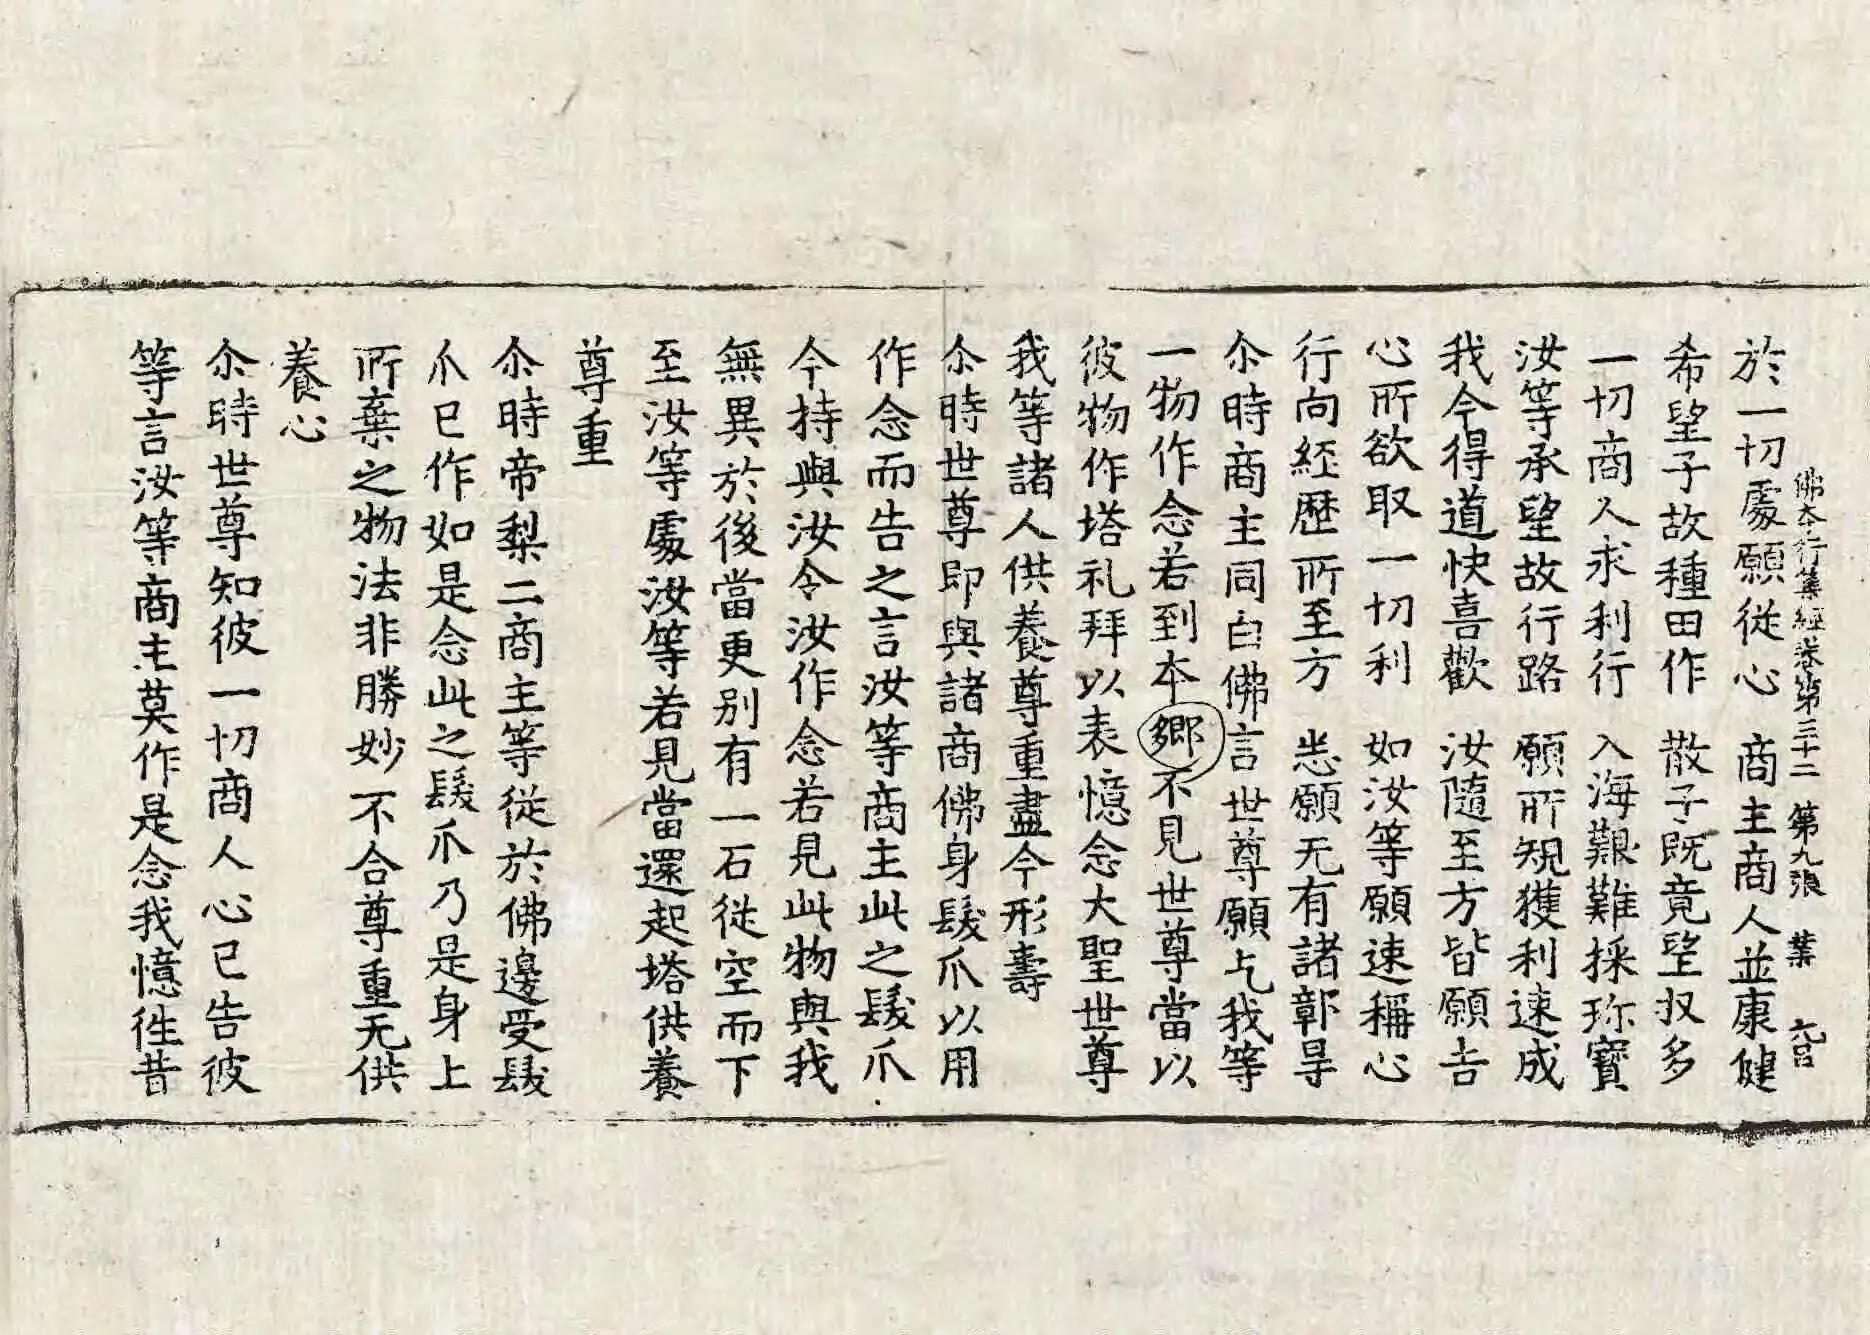 佛本行集經卷第三十二 第九張 葉
於一切處願從心 商主商人並康健
希望子故種田作 散子既竟望收多
一切商人求利行 入海艱難採珎寳
汝等承望故行路 願所規獲利速成
我今得道快喜歡 汝隨至方皆願吉
心所欲取一切利 如汝等願速稱心
行向經歷所至方 悉願无有諸鄣㝵
尒時商主同白佛言世尊願乞我等
一物作念若到本鄉不見世尊當以
彼物作塔礼拜以表憶念大聖世尊
我等諸人供養尊重盡今形壽
尒時世尊即與諸商佛身髮爪以用
作念而告之言汝等商主此之髮爪
今持與汝令汝作念若見此物與我
無異於後當更別有一石從空而下
至汝等處汝等若見當還起塔供養
尊重
尒時帝梨二商主等從於佛邊受髮
爪已作如是念此之髮爪乃是身上
所棄之物法非勝妙不合尊重无供
養心
尒時世尊知彼一切商人心已告彼
等言汝等商主莫作是念我憶往昔